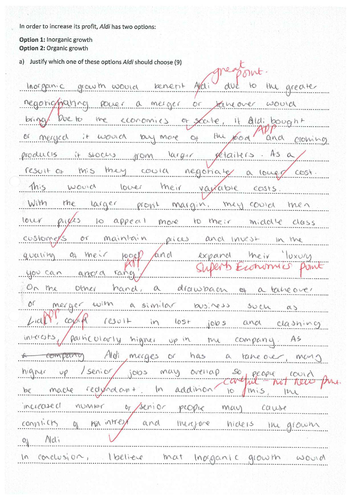 In order to increase its profit, Aldi has two options:
Option 1: Inorganic growth
Option 2: Organic growth
a) Justify which one of these options Aldi should choose (9)
great point.
Inorganic growth would benefit Aldi due to the greater
negotiating power a merger or takeover would
bring. Due to the economies of scale, if Aldi bought
or merged it would buy more of the food and clothing
APP
products it stocks from larger retailers. As a
result of this they could negotiate a lower cost.
This would lower their variable costs.
With the larger profit margin, they could then
lower prices to appeal more to their middle class
customers or maintain prices and invest in the
quality of their food and expand their 'luxury
APP
you can afford' range.
Superb Economics point
On the other hand, a drawback of a takeover
or merger with a similar business such as
APP
Lidl could result in lost jobs and clashing
interests, particularly higher up in the company. As
Aldi merges or has a takeover, many
higher up / senior jobs may overlap so people could
be made redundant. In addition to this, the
careful not new pnt.
increased number of senior people may cause
conflicts of interest and therefore hinders the growth
of Aldi
In conclusion, I believe that Inorganic growth would